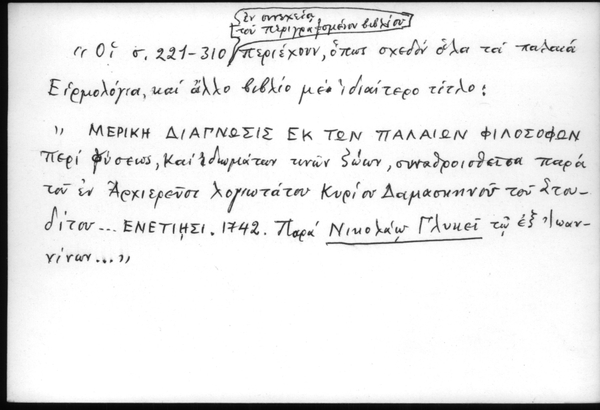 ἐν συνεχείᾳ
τοῦ περιγραφομένου βιβλίου
« Οἱ σ. 221-310 περιέχουν, ὅπως σχεδόν ὅλα τά παλαιά
Εἱρμολόγια, καί ἄλλο βιβλίο μέ ἰδιαίτερο τίτλο:
„ ΜΕΡΙΚΗ ΔΙΑΓΝΩΣΙΣ ΕΚ ΤΩΝ ΠΑΛΑΙΩΝ ΦΙΛΟΣΟΦΩΝ
Περί φύσεως, καί ἰδιωμάτων τινῶν ζώων, συναθροισθεῖσα παρά
τοῦ ἐν Ἀρχιερεῦσι λογιωτάτου Κυρίου Δαμασκηνοῦ τοῦ Στου-
δίτου... ΕΝΕΤΙΗΣΙ. 1742. Παρά Νικολάῳ Γλυκεῖ τῷ ἐξ Ἰωαν-
νίνων... „